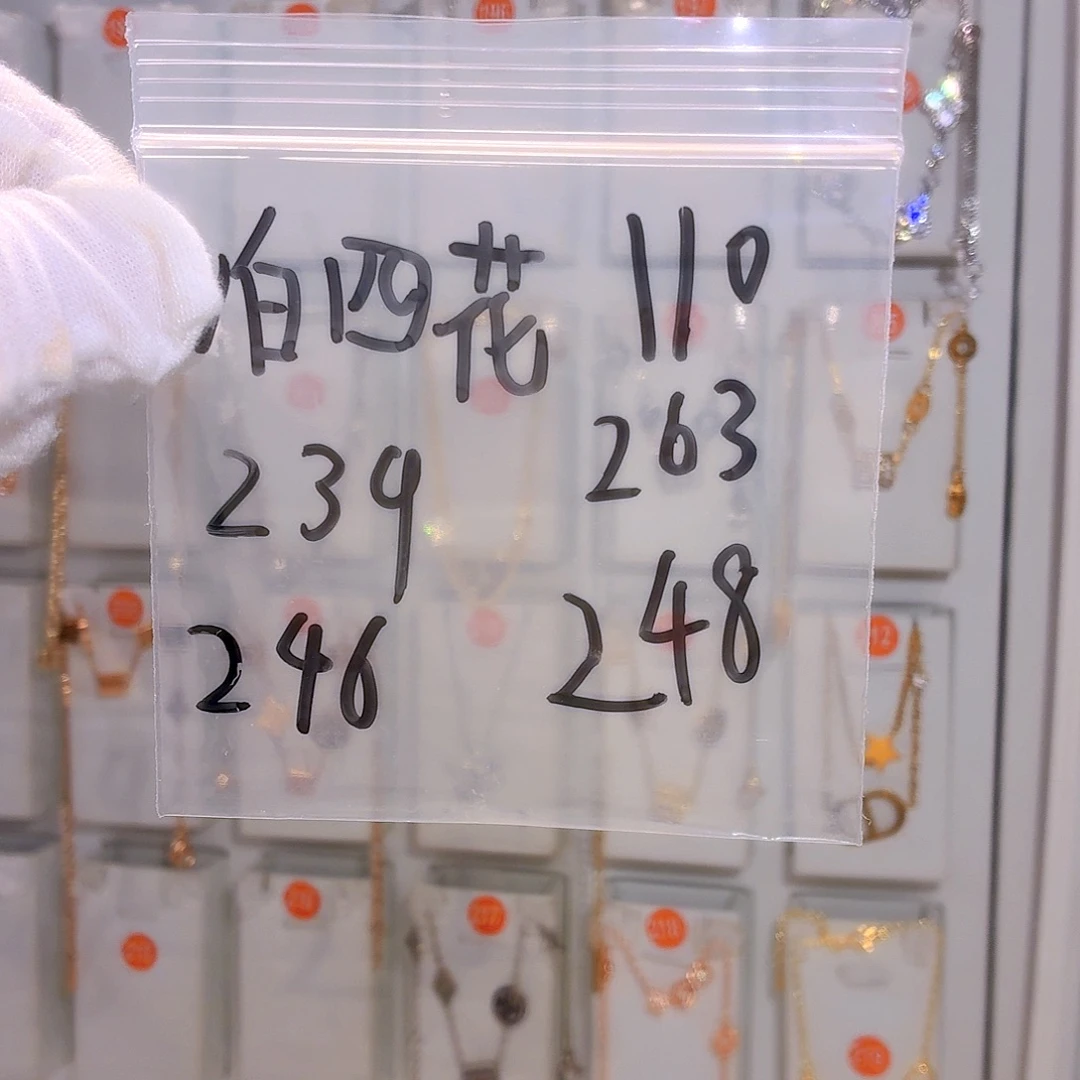 伯四花 110
239 263
246 248